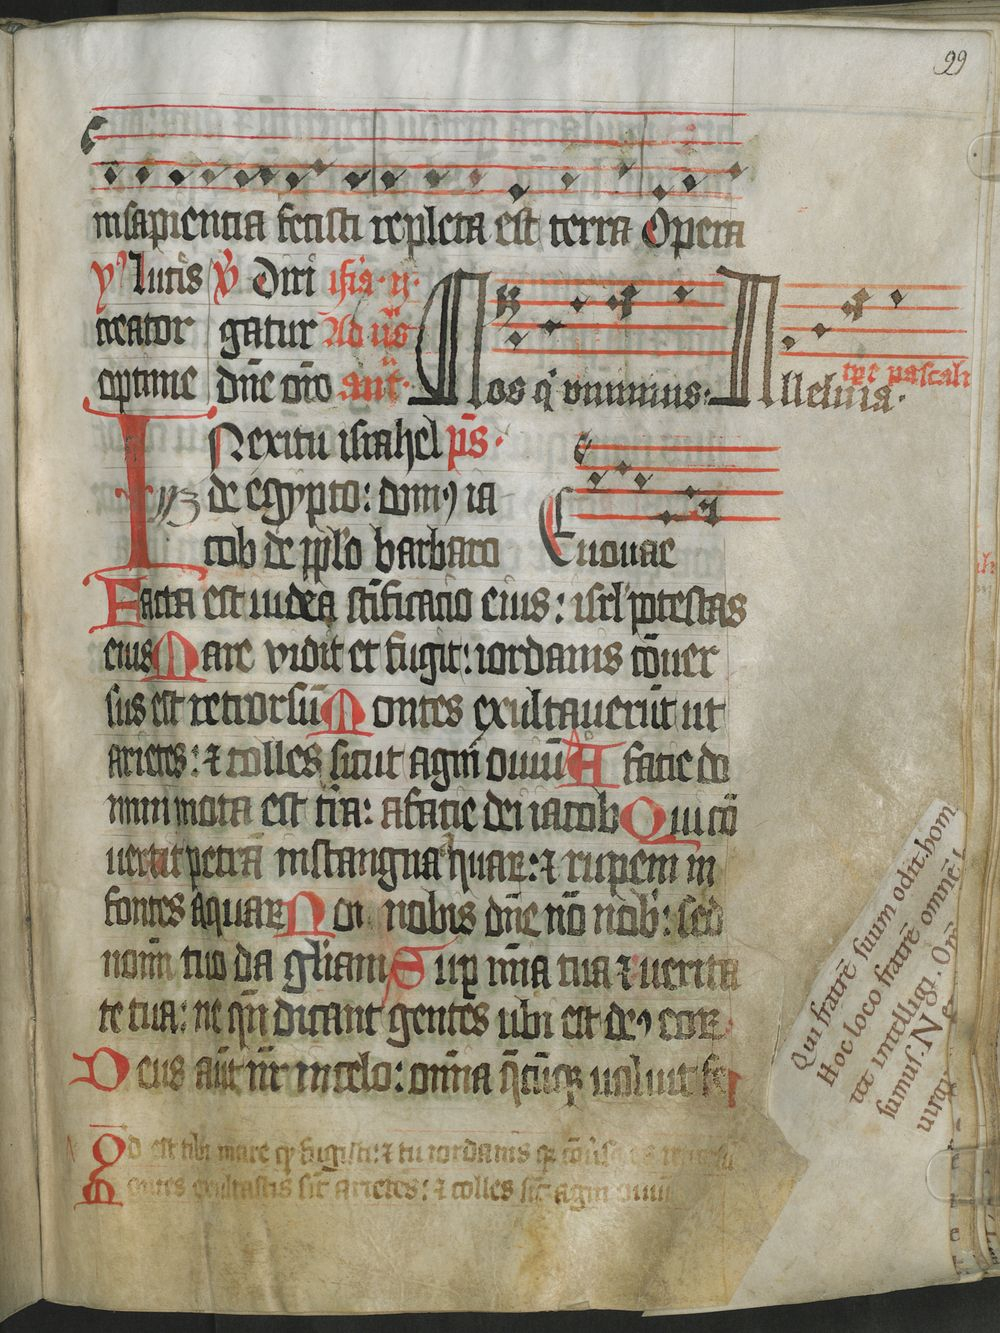 99
insapientia fecisti repleta est terra Opera
Lucis Diri ifia · ij ·
creator gatur Ad
optime dne oro ant · Nos q vivimus : Alleluia . tpe pascali
IN exitu israhel ps ·
de egypto : domꝰ ia
cob de pplo barbaro Euouae
Facta est iudea scificatio eius : isrl potestas
eius Mare vidit et fugit : iordanis cōuer
sus est retrorsū Montes exultauerūt ut
arietes : ⁊ colles sicut agni ouiū A facie do
mini mota est tra : afacie dei iacob Qui cō
uertit petrā instangna aquaꝝ : ⁊ rupem in
fontes aquaꝝ Non nobis dne nō nob : sed
noim tuo da gliam Sup mia tua ⁊ uerita
te tua : ne qn dicant gentes ubi est deꝰ eoꝝ
Deus aut nr in celo : omia qcūqꝫ uoluit fe
Qd est tibi mare qꝫ fugisti : ⁊ tu iordanis
Montes exultastis sic arietes : ⁊ colles sic agni ouiū
Qui fratrē suum odit . hom
Hoc loco fratrē omnē
ut intelligi . Om
sumus . Ne
uirqꝫ